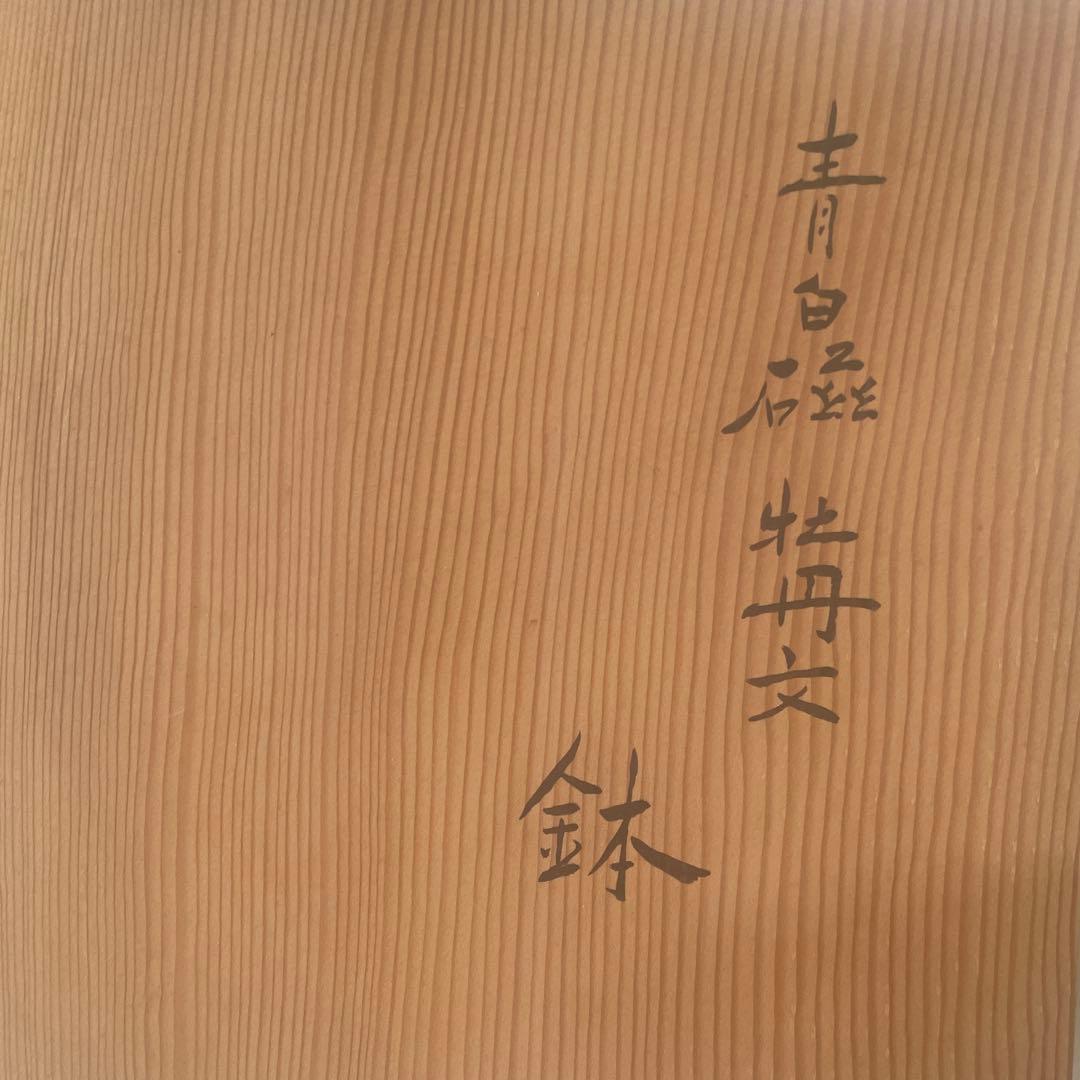 青白磁牡丹文
鉢